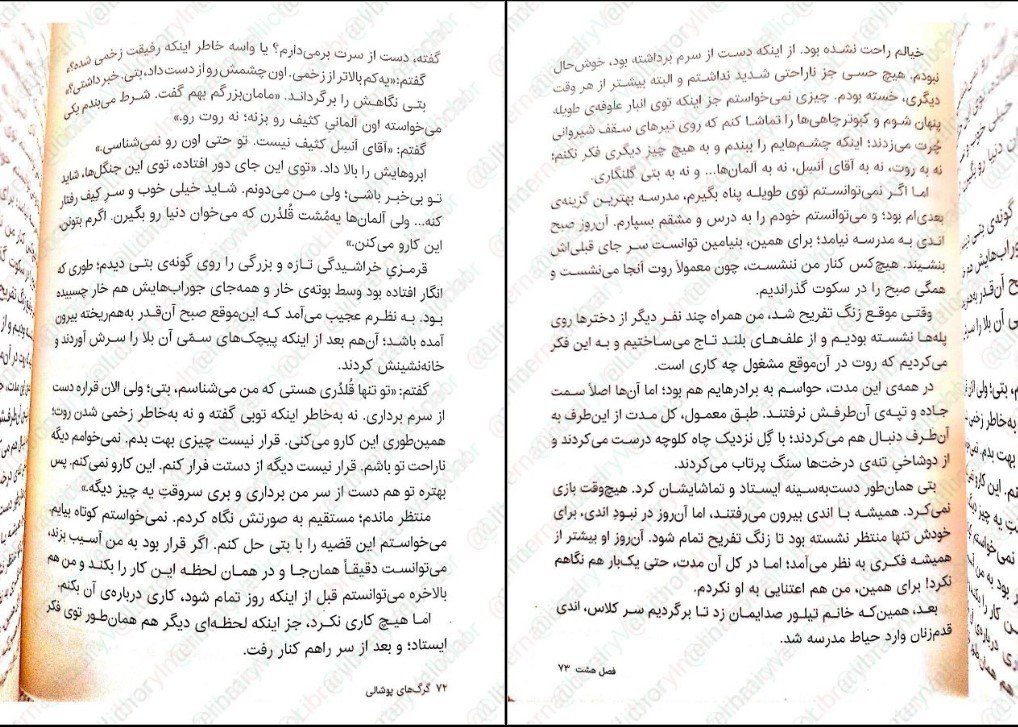 گفته، دست از سرت برمی‌دارم؟ یا واسه خاطر اینکه رفیقت زخمی شده؟»
گفتم: «یه‌کم بالاتر از زخمی. اون چشمش رو از دست داد، بتی. خبر داشتی؟»
بتی نگاهش را برگرداند. «مامان‌بزرگم بهم گفت. شرط می‌بندم یکی
می‌خواسته اون آلمانیِ کثیف رو بزنه؛ نه روت رو.»
گفتم: «آقای آنسِل کثیف نیست. تو حتی اون رو نمی‌شناسی.»
ابروهایش را بالا داد. «توی این جای دور افتاده، توی این جنگل‌ها، شاید
تو بی‌خبر باشی؛ ولی من می‌دونم. شاید خیلی خوب و سرِ کیف رفتار
کنه... ولی آلمان‌ها یه‌مُشت قُلدُرن که می‌خوان دنیا رو بگیرن. اگرم بتونن،
این کارو می‌کنن.»
قرمزیِ خراشیدگی تازه و بزرگی را روی گونه‌ی بتی دیدم؛ طوری که
انگار افتاده بود وسط بوته‌ی خار و همه‌جای جوراب‌هایش هم خار چسبیده
بود. به نظرم عجیب می‌آمد که این‌موقع صبح آن‌قدر به‌هم‌ریخته بیرون
آمده باشد؛ آن‌هم بعد از اینکه پیچک‌های سمّی آن بلا را سرش آوردند و
خانه‌نشینش کردند.
گفتم: «تو تنها قُلدُری هستی که من می‌شناسم، بتی؛ ولی الان قراره دست
از سرم برداری. نه به‌خاطر اینکه توبی گفته و نه به‌خاطر زخمی شدن روت؛
همین‌طوری این کارو می‌کنی. قرار نیست چیزی بهت بدم. نمی‌خوامم دیگه
ناراحت تو باشم. قرار نیست دیگه از دستت فرار کنم. این کارو نمی‌کنم. پس
بهتره تو هم دست از سر من برداری و بری سروقتِ یه چیز دیگه.»
منتظر ماندم؛ مستقیم به صورتش نگاه کردم. نمی‌خواستم کوتاه بیایم.
می‌خواستم این قضیه را با بتی حل کنم. اگر قرار بود به من آسیب بزند،
می‌توانست دقیقاً همان‌جا و در همان لحظه این کار را بکند و من هم
بالاخره می‌توانستم قبل از اینکه روز تمام شود، کاری درباره‌ی آن بکنم.
اما هیچ کاری نکرد، جز اینکه لحظه‌ای دیگر هم همان‌طور توی فکر
ایستاد؛ و بعد از سر راهم کنار رفت.
۷۲ گرگ‌های پوشالی
خیالم راحت نشده بود. از اینکه دست از سرم برداشته بود، خوش‌حال
نبودم. هیچ حسی جز ناراحتی شدید نداشتم و البته بیشتر از هر وقت
دیگری، خسته بودم. چیزی نمی‌خواستم جز اینکه توی انبار علوفه‌ی طویله
پنهان شوم و کبوترچاهی‌ها را تماشا کنم که روی تیرهای سقف شیروانی
چُرت می‌زدند؛ اینکه چشم‌هایم را ببندم و به هیچ چیز دیگری فکر نکنم؛
نه به روت، نه به آقای آنسِل، نه به آلمان‌ها... و نه به بتی گلنگاری.
اما اگر نمی‌توانستم توی طویله پناه بگیرم، مدرسه بهترین گزینه‌ی
بعدی‌ام بود؛ و می‌توانستم خودم را به درس و مشقم بسپارم. آن‌روز صبح
اندی به مدرسه نیامد؛ برای همین، بنیامین توانست سر جای قبلی‌اش
بنشیند. هیچ‌کس کنار من ننشست، چون معمولاً روت آنجا می‌نشست و
همگی صبح را در سکوت گذراندیم.
وقتی موقع زنگ تفریح شد، من همراه چند نفر دیگر از دخترها روی
پله‌ها نشسته بودیم و از علف‌های بلند تاج می‌ساختیم و به این فکر
می‌کردیم که روت در آن‌موقع مشغول چه کاری است.
در همه‌ی این مدت، حواسم به برادرهایم هم بود؛ اما آن‌ها اصلاً سمت
جاده و تپه‌ی آن‌طرفش نرفتند. طبق معمول، کل مدت از این‌طرف به
آن‌طرف دنبال هم می‌کردند؛ با گِل نزدیک چاه کلوچه درست می‌کردند و
از دوشاخیِ تنه‌ی درخت‌ها سنگ پرتاب می‌کردند.
بتی همان‌طور دست‌به‌سینه ایستاد و تماشایشان کرد. هیچ‌وقت بازی
نمی‌کرد. همیشه با اندی بیرون می‌رفتند، اما آن‌روز در نبودِ اندی، برای
خودش تنها منتظر نشسته بود تا زنگ تفریح تمام شود. آن‌روز او بیشتر از
همیشه فکری به نظر می‌آمد؛ اما در کل آن مدت، حتی یک‌بار هم نگاهم
نکرد! برای همین، من هم اعتنایی به او نکردم.
بعد، همین‌که خانم تیلور صدایمان زد تا برگردیم سر کلاس، اندی
قدم‌زنان وارد حیاط مدرسه شد.
فصل هشت ۷۳